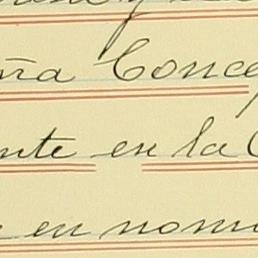 ña Conce
nte en la C
en nom